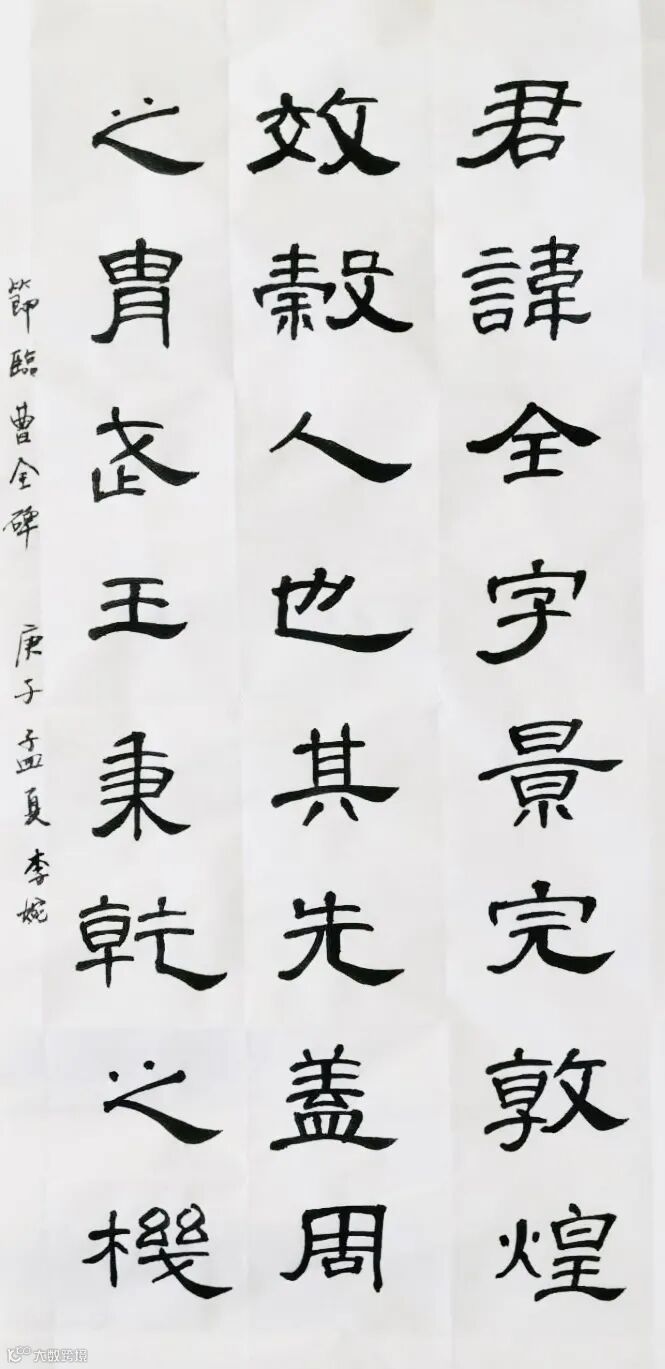 君諱全字景完敦煌
效穀人也其先蓋周
之胄武王秉乾之機
節臨曹全碑 庚子孟夏 李婉
大数跨境